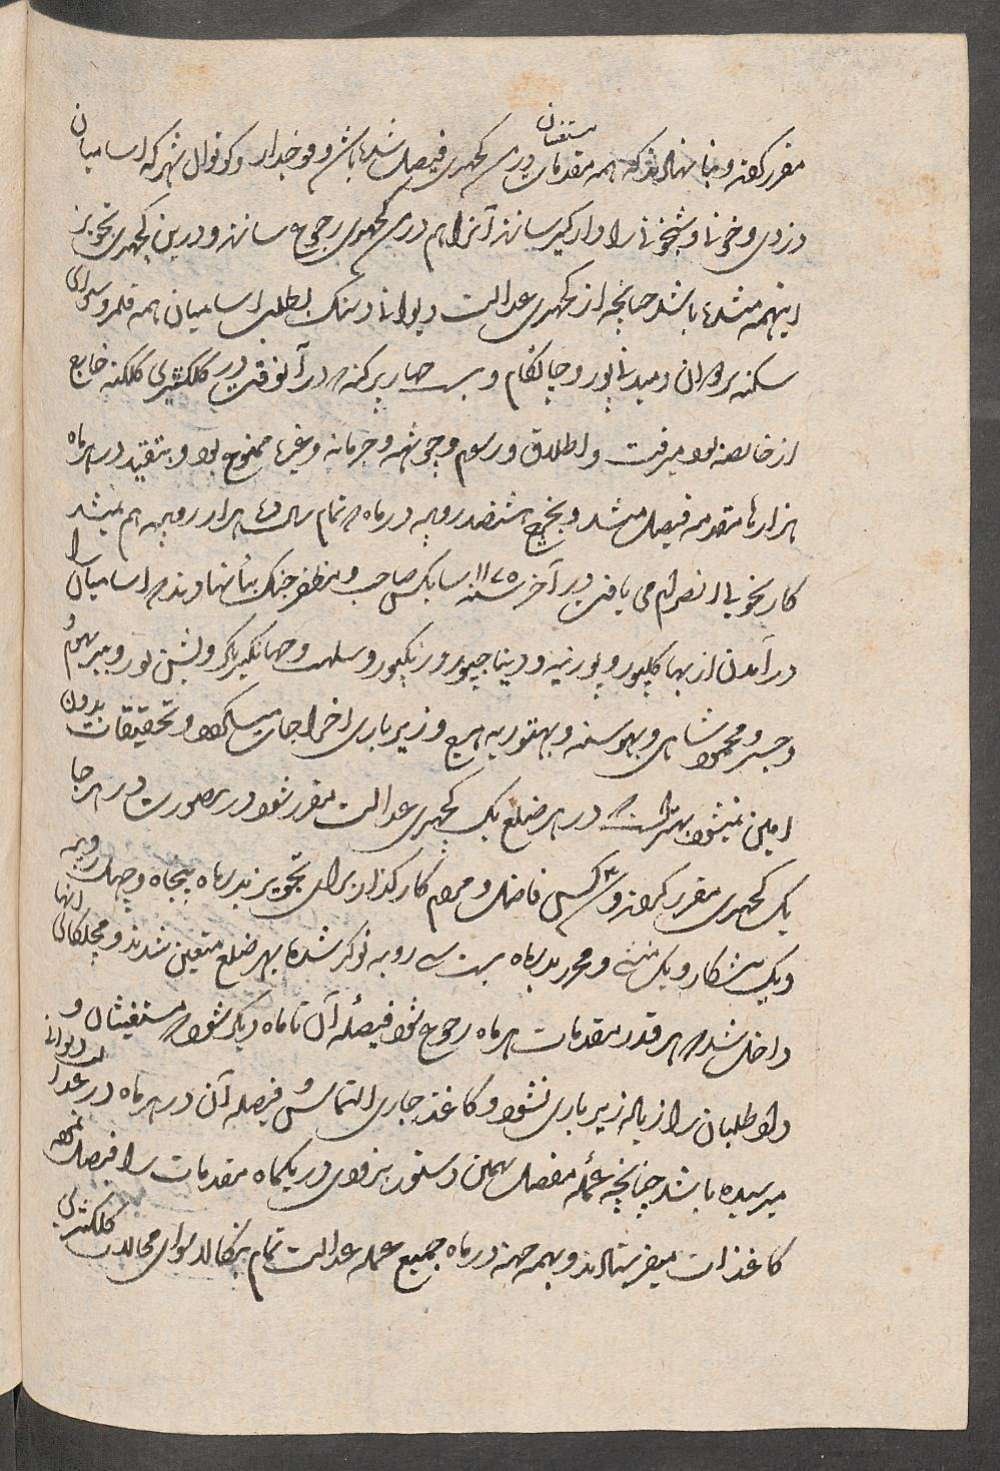 مقرر کرده و بنا نهادند که همه مقدمات مستغیثان درین کچهری فیصل شده باشد و فوجدار و کوتوال شهر که اسامیان
دزدی و خونی را وا گیر سازند آنرا هم درین کچهری رجوع سازند و درین کچهری تجویز
اینهمه شده باشد چنانچه از کچهری عدالت دیوانی دستک بطلب اسامیان همه قلمرو سوای
سکنه بردوان و میدنیاپور و چاتگام و بیست چهار پرگنه که در آنوقت در کلکتری کلکته خارج
از خالصه بود میرفت و اطلاق و رسوم و چوتهه و جرمانه و غیره ممنوع بود و بتقید در هر ماه
هزارها مقدمه فیصل میشد و بخرچ هشتصد روپیه در ماه که تمام سال ده هزار روپیه هم نمیشد
کار بخوبی انصرام می یافت در آخر سنه ۱۱۷۵ سایکس صاحب و مظفر جنگ بنا نهادند که اسامیان را
در آمدن از بهاگلپور و پورنیه و دیناجپور و رنگپور و سلهت و جهانگیرنگر و بشن پور و بیربهوم
و جسر و محمود شاهی و بهوسنه و بهتوریه هرج و زیرباری اخراجات میگردد و تحقیقات بدون
امین نمیشود بهتر آنست که در هر ضلع یک کچهری عدالت مقرر شود درینصورت در هر جا
یک کچهری مقرر کردند و ۳ کس فاضل و مردم کارگذار برای تجویز بدرماه پنجاه و چهل روپیه
و یک پیشکار و یک منشی و محرر بدرماه بیست سی روپیه نوکر شده بهر ضلع متعین شدند و مچلکای آنها
داخل شد که هر قدر مقدمات هر ماه رجوع شود فیصله آن تا ماه دیگر شود که مستغیثان و
داد طلبان را زیاده زیرباری نشود و کاغذ جاری التماس و فیصله آن در هر ماه در عدالت دیوانی
میرسیده باشد چنانچه عمله مفصل بهمین دستور بزودی در یکماه مقدمات را فیصل نموده
کاغذات میفرستادند و بهمه جهت در ماه جمیع عمله عدالت تمام بنگاله سوای محالات کلکتری